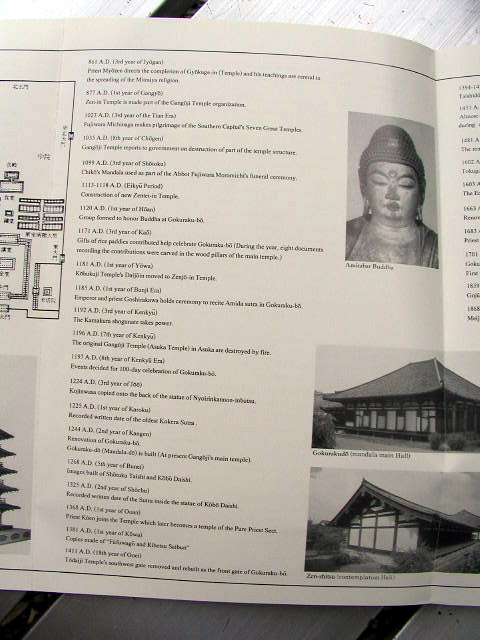 861 A.D. (3rd year of Jyōgan)
Priest Myōsen directs the completion of Gyōkuga in (Temple) and his teachings are central in
the spreading of the Mimitsu religion.
877 A.D. (1st year of Gangyō)
Zen-in Temple is made part of the Gangōji Temple organization.
1023 A.D. (3rd year of the Tian Era)
Fujiwara Michinaga makes pilgrimage of the Southern Capital's Seven Great Temples.
1035 A.D. (8th year of Chōgen)
Gangōji Temple reports to government on destruction of part of the temple structure.
1099 A.D. (3rd year of Shōtoku)
Chikō's Mandala used as part of the Abbot Fujiwara Moromichi's funeral ceremony.
1113-1118 A.D. (Eikyū Period)
Construction of new Zentei-in Temple.
1120 A.D. (1st year of Hōan)
Group formed to honor Buddha at Gokuraku-bō.
1171 A.D. (3rd year of Kaō)
Gifts of rice paddies contributed help celebrate Gokuraku-bō (During the year, eight documents
recording the contributions were carved in the wood pillars of the main temple.)
1181 A.D. (1st year of Yōwa)
Kōfukuji Temple's Daijōin moved to Zenjō-in Temple.
1185 A.D. (1st year of Bunji Era)
Emperor and priest Goshirakawa holds ceremony to recite Amida sutra in Gokuraku-bō.
1192 A.D. (3rd year of Kenkyū)
The Kamakura shogunate takes power.
1196 A.D. (7th year of Kenkyū)
The original Gangōji Temple (Asuka Temple) in Asuka are destroyed by fire.
1197 A.D. (8th year of Kenkyū Era)
Events decided for 100-day celebration of Gokuraku-bō.
1224 A.D. (3rd year of Jōō)
copied onto the back of the statue of Nyoirinkannon-zobutsu.
1225 A.D. (1st year of Karoku)
Recorded written date of the oldest Kokera Sutra.
1244 A.D. (2nd year of Kangen)
Renovation of Gokuraku-bō.
Gokuraku-dō (Mandala-dō) is built (At present Gangōji's main temple).
1268 A.D. (5th year of Bunei)
Images built of Shōtoku Taishi and Kōbō Daishi.
1325 A.D. (2nd year of Shōchu)
Recorded written date of the Sutra inside the statue of Kōbō Daishi.
1368 A.D. (1st year of Ouan)
Priest Kōen joins the Temple which later becomes a temple of the Pure Priest Sect.
1381 A.D. (1st year of Kōwa)
Copies made of "Fūfuwagō and Kibetsu Seibun"
1411 A.D. (18th year of Ouei)
Tōdaiji Temple's southwest gate removed and rebuilt as the front gate of Gokuraku-bō.
Amitabar Buddha
Gokurakudō (mandala main Hall)
Zen-shitsu (contemplation Hall)
1394-14